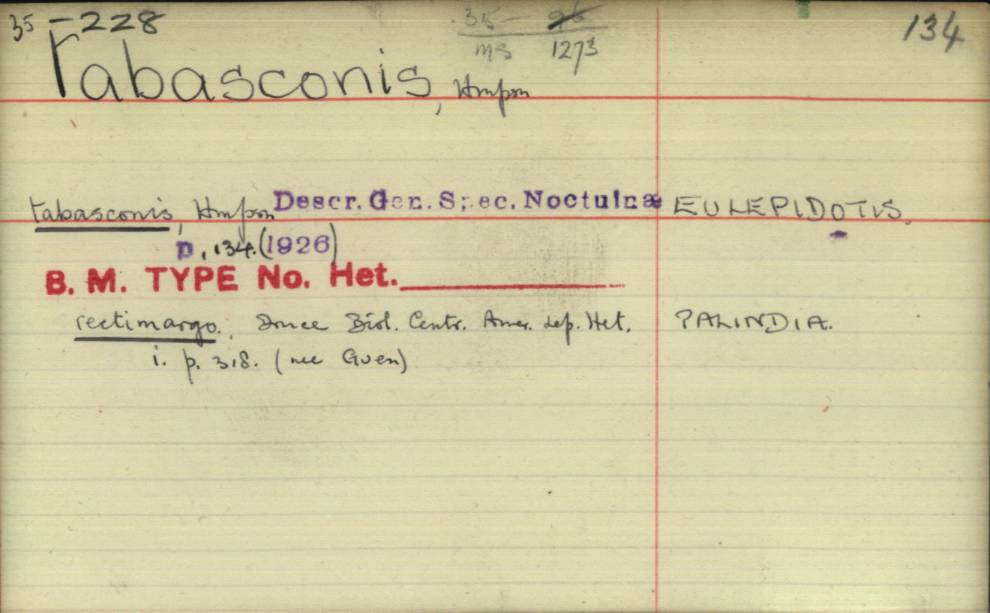 35 - 228
35 - 96
MS 1273
134
Tabasconis, Hmpsn
tabasconis, Hmpsn Descr. Gen. Spec. Noctuinæ EULEPIDOTIS.
p. 134. (1926)
B. M. TYPE No. Het.
rectimargo. Druce Biol. Centr. Amer. Lep. Het. PALINDIA.
i. p. 318. (nec Guen)